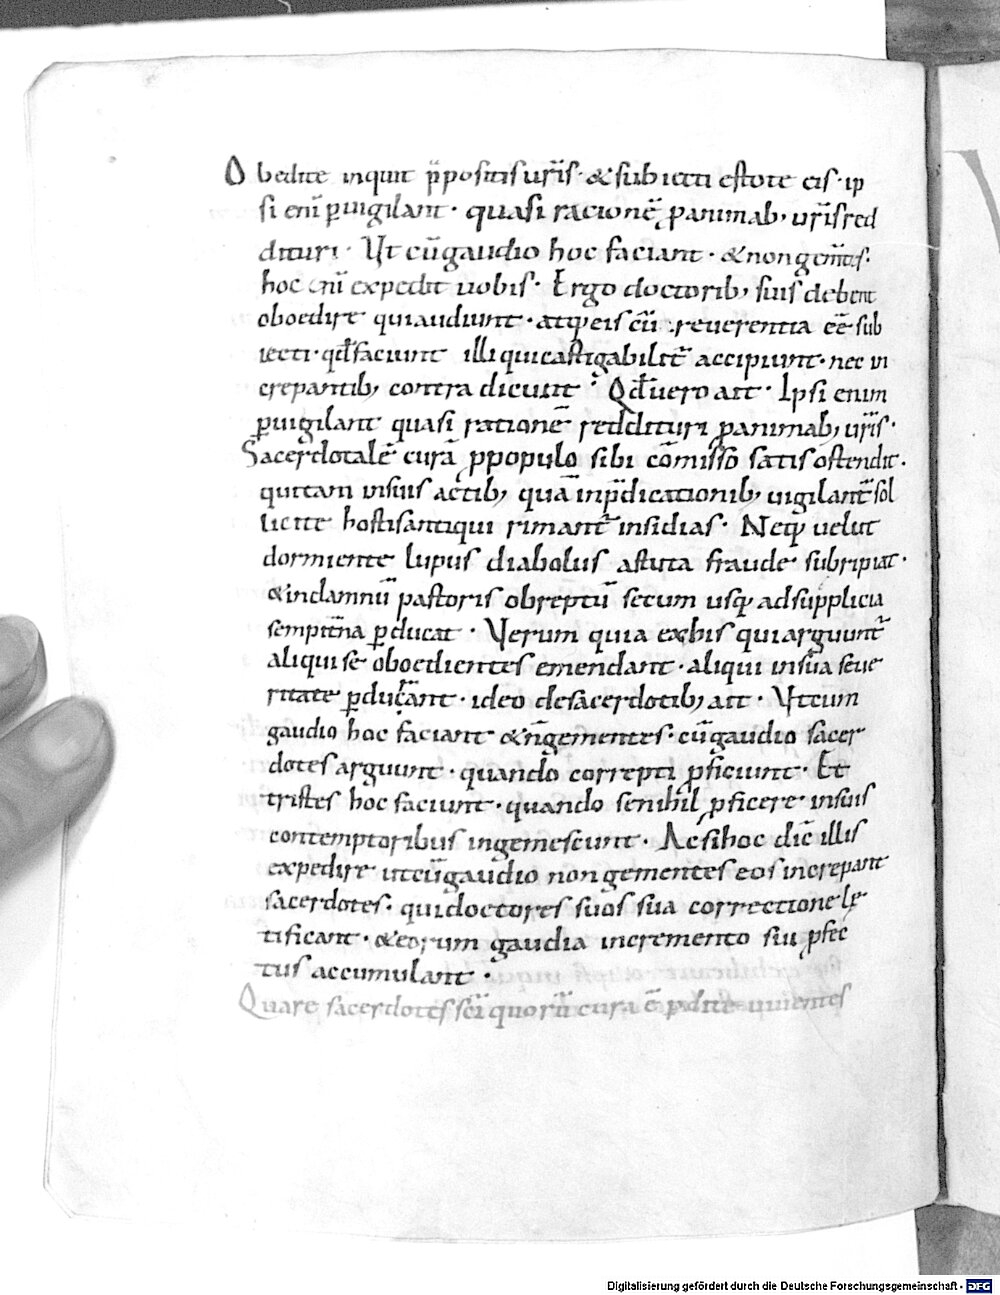 Obedite inquit p̄positis ur̄is · & subiecti estote eis · ip
si eni̅ ꝑuigilant · quasi racione̅ ꝑ animab; ur̄is red
dituri · Ut cu̅ gaudio hoc faciant · & non gem̅tes ·
hoc eni̅ expedit uobis · Ergo doctorib; suis debent
oboedire qui audiunt · atq; eis cu̅ reuerentia ee̅ sub
iecti · qd̅ faciunt illi qui castigabilit̅ accipiunt · nec in
crepantib; contra dicunt · Qd̅ uero ait · Ipsi enim
ꝑuigilant quasi ratione̅ reddituri ꝑ animab; ur̄is ·
Sacerdotale̅ cura̅ ꝓ populo sibi co̅misso satis ostendit ·
qui tam in suis actib; qua̅ in p̄dicationib; uigilant̅ sol
licite hostis antiqui rimant̅ insidias · Neq; uelut
dormiente lupus diabolus astuta fraude subripiat ·
& in damnu̅ pastoris obreptu̅ secum usq; ad supplicia
sempit̅na ꝑducat · Uerum quia ex his qui arguunt̅
aliqui se oboedientes emendant · aliqui in sua seue
ritate ꝑdurant · ideo de sacerdotib; ait · Ut cum
gaudio hoc faciant & n̅ gementes · cu̅ gaudio sacer
dotes arguunt · quando correpti ꝓficiunt · Et
tristes hoc faciunt · quando se nihil ꝓficere in suis
contemptoribus ingemescunt · Ac si hoc dic̅ illis
expedire ut cu̅ gaudio non gementes eos increpant
sacerdotes · qui doctores suos sua correctione lę
tificant · & eorum gaudia incremento sui ꝓfec
tus accumulant ·
Quare sacerdotes sc̅i quoru̅ cura e̅ uiuentes